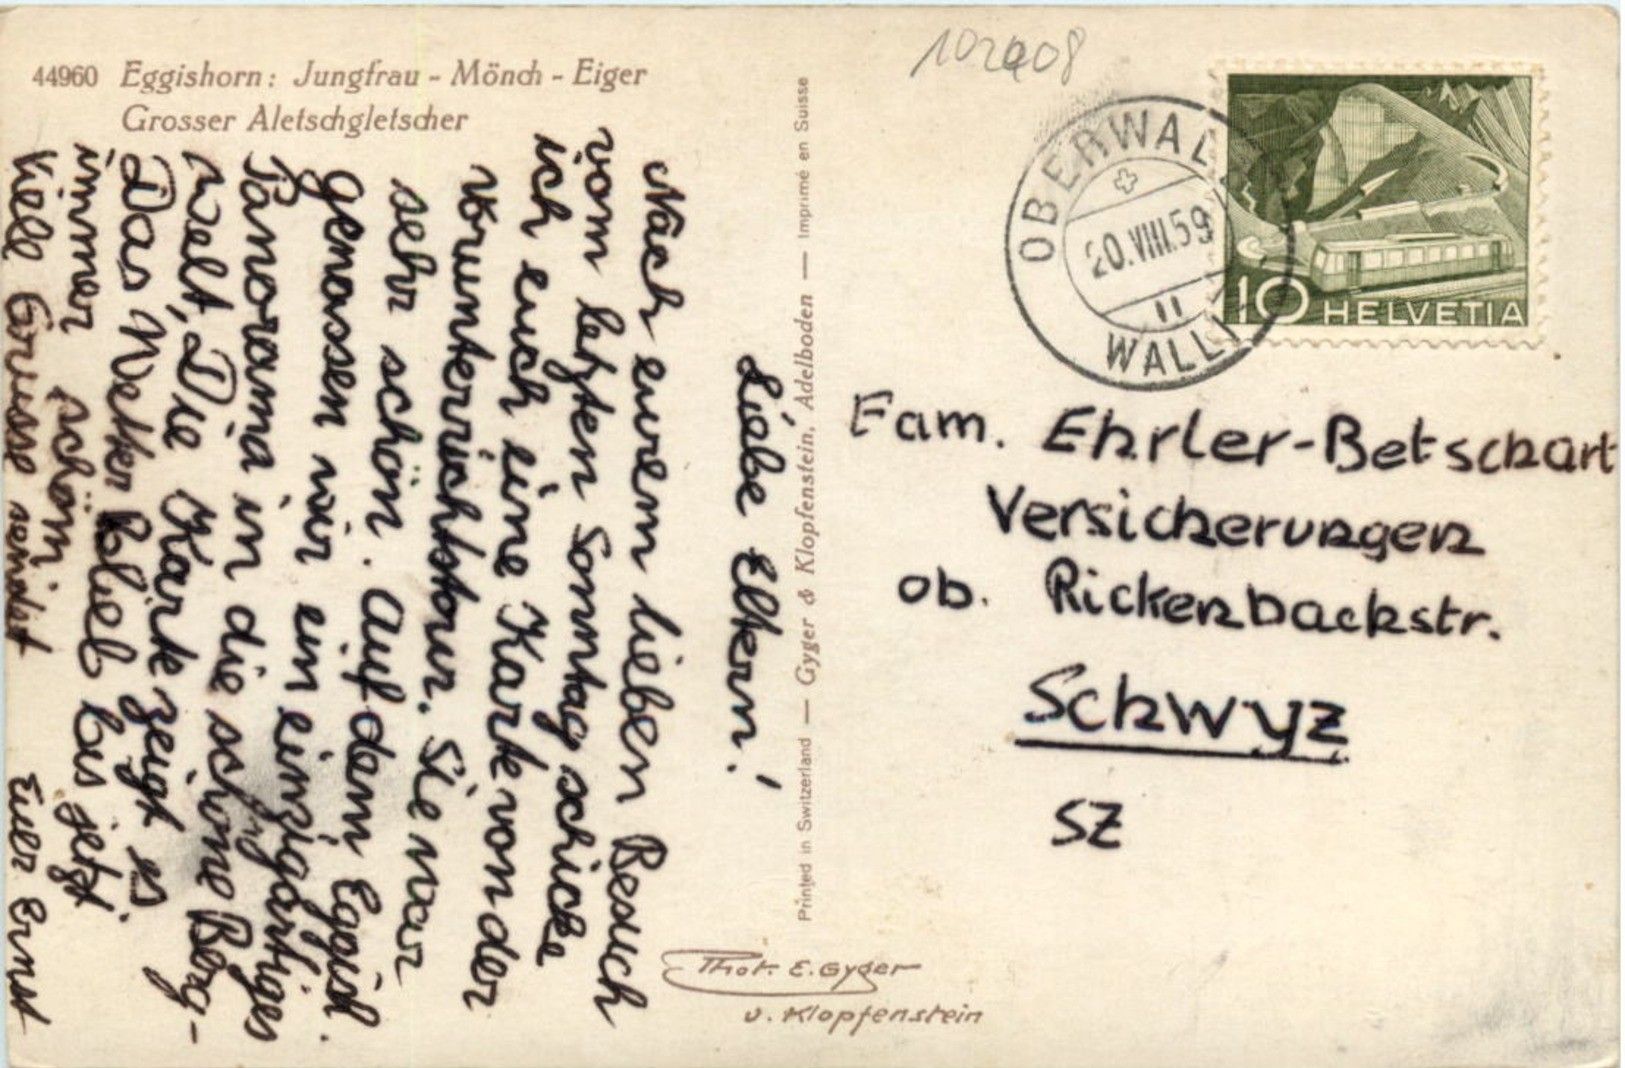 44960 Eggishorn: Jungfrau - Mönch - Eiger
Grosser Aletschgletscher
Liebe Eltern!
Nach eurem lieben Besuch
vom letzten Sonntag schicke
ich euch eine Karte von der
Vrunterrichtstour. Sie war
sehr schön. Auf dem Eggish.
genossen wir ein einzigartiges
Panorama in die schöne Berg-
welt, Die Karte zeigt es
Das Wetter blieb bis jetzt
immer schön
Viele Grüsse sendet Euer Ernst
Printed in Switzerland — Gyger & Klopfenstein, Adelboden — Imprimé en Suisse
Phot. E. Gyger
u. Klopfenstein
OBERWAL
20.VIII.59
WALLI
10 HELVETIA
Fam. Ehrler-Betschart
Versicherungen
ob. Rickenbachstr.
Schwyz
SZ